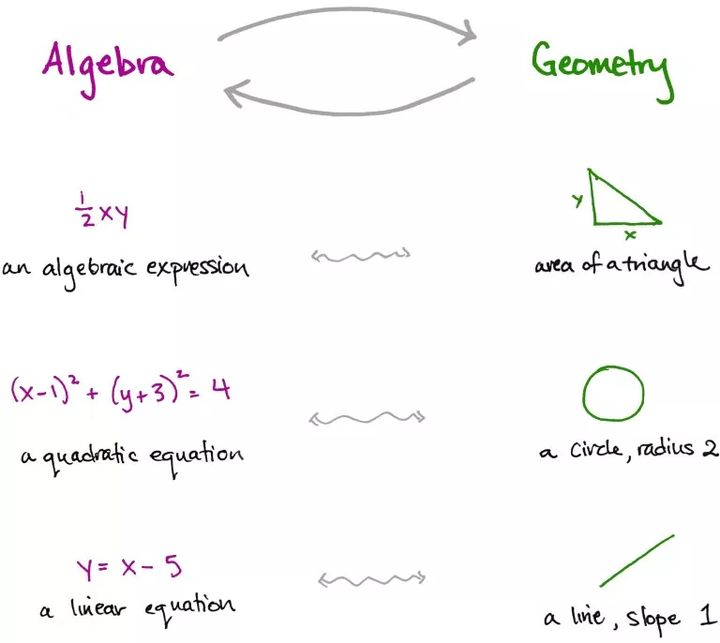 Algebra
Geometry
½xy
y
x
an algebraic expression
area of a triangle
(x-1)² + (y+3)² = 4
a quadratic equation
a circle, radius 2
y = x - 5
a linear equation
a line, slope 1